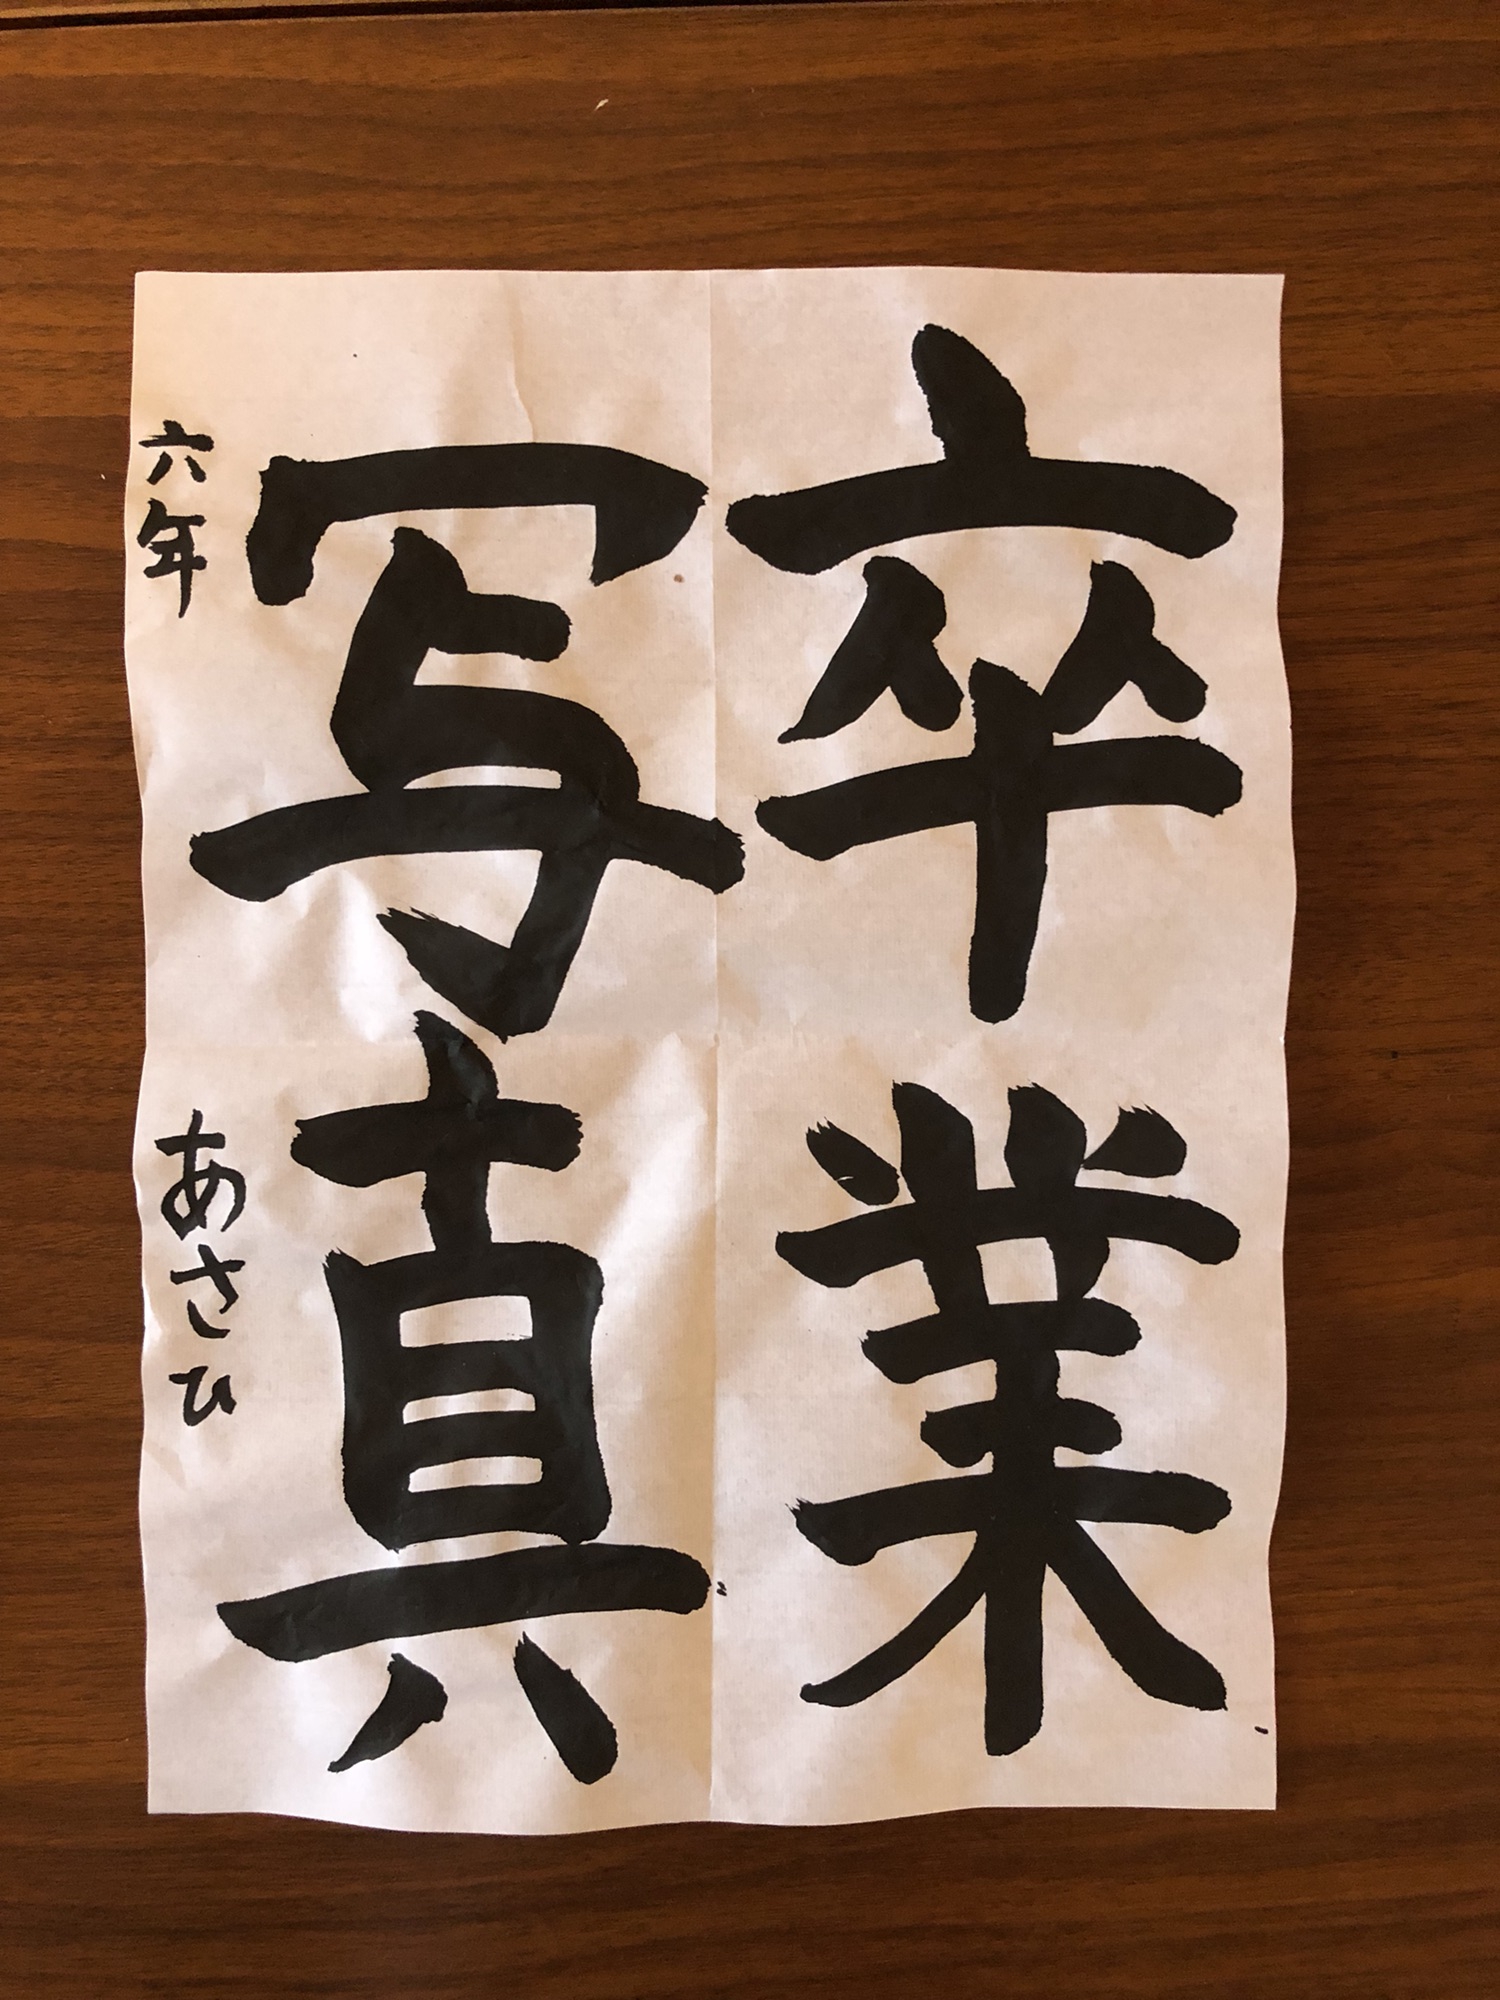 卒業
写真
六年 あさひ